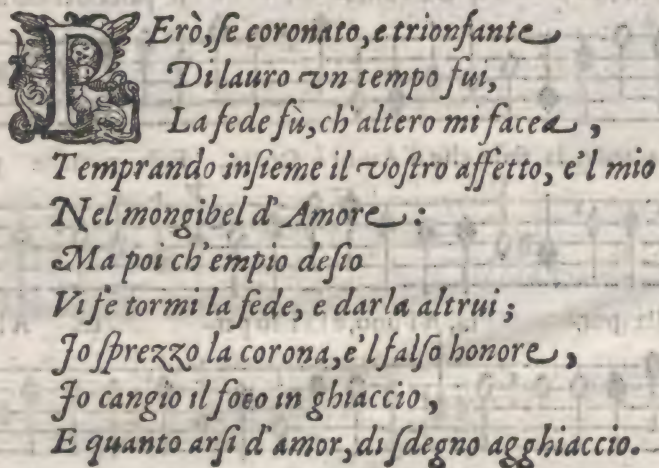 Però, ſe coronato, e trionfante
Di lauro vn tempo fui,
La fede fù, ch'altero mi facea,
Temprando inſieme il voſtro affetto, e'l mio
Nel mongibel d'Amore:
Ma poi ch'empio deſio
Vi fe tormi la fede, e darla altrui;
Io ſprezzo la corona, e'l falſo honore,
Io cangio il foco in ghiaccio,
E quanto arſi d'amor, di ſdegno agghiaccio.